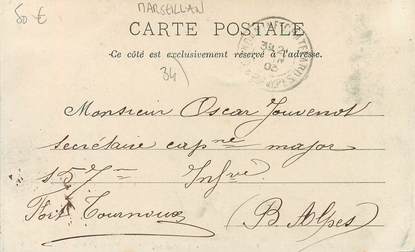 50 €
MARSEILLAN
CARTE POSTALE
Ce côté est exclusivement réservé à l'adresse.
34)
Monsieur Oscar Jouvenot
secrétaire cap^ne major
157^m Inf^rie
Fort Tournoux (B. Alpes)